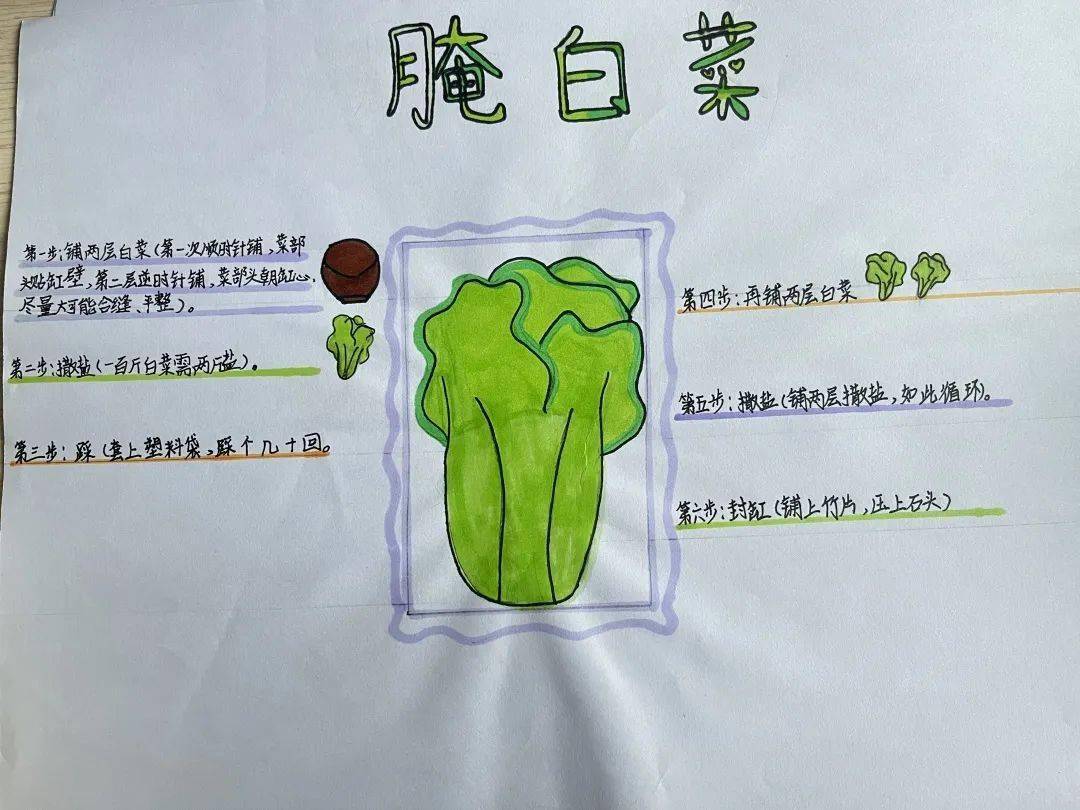 腌白菜
第一步:铺两层白菜(第一次顺时针铺,菜部
头贴缸壁,第二层逆时针铺,菜部头朝缸心,
尽量大可能合缝、平整)。
第二步:撒盐(一百斤白菜需两斤盐)。
第三步:踩(套上塑料袋,踩个几十回。
第四步:再铺两层白菜
第五步:撒盐(铺两层撒盐,如此循环。
第六步:封缸(铺上竹片,压上石头)